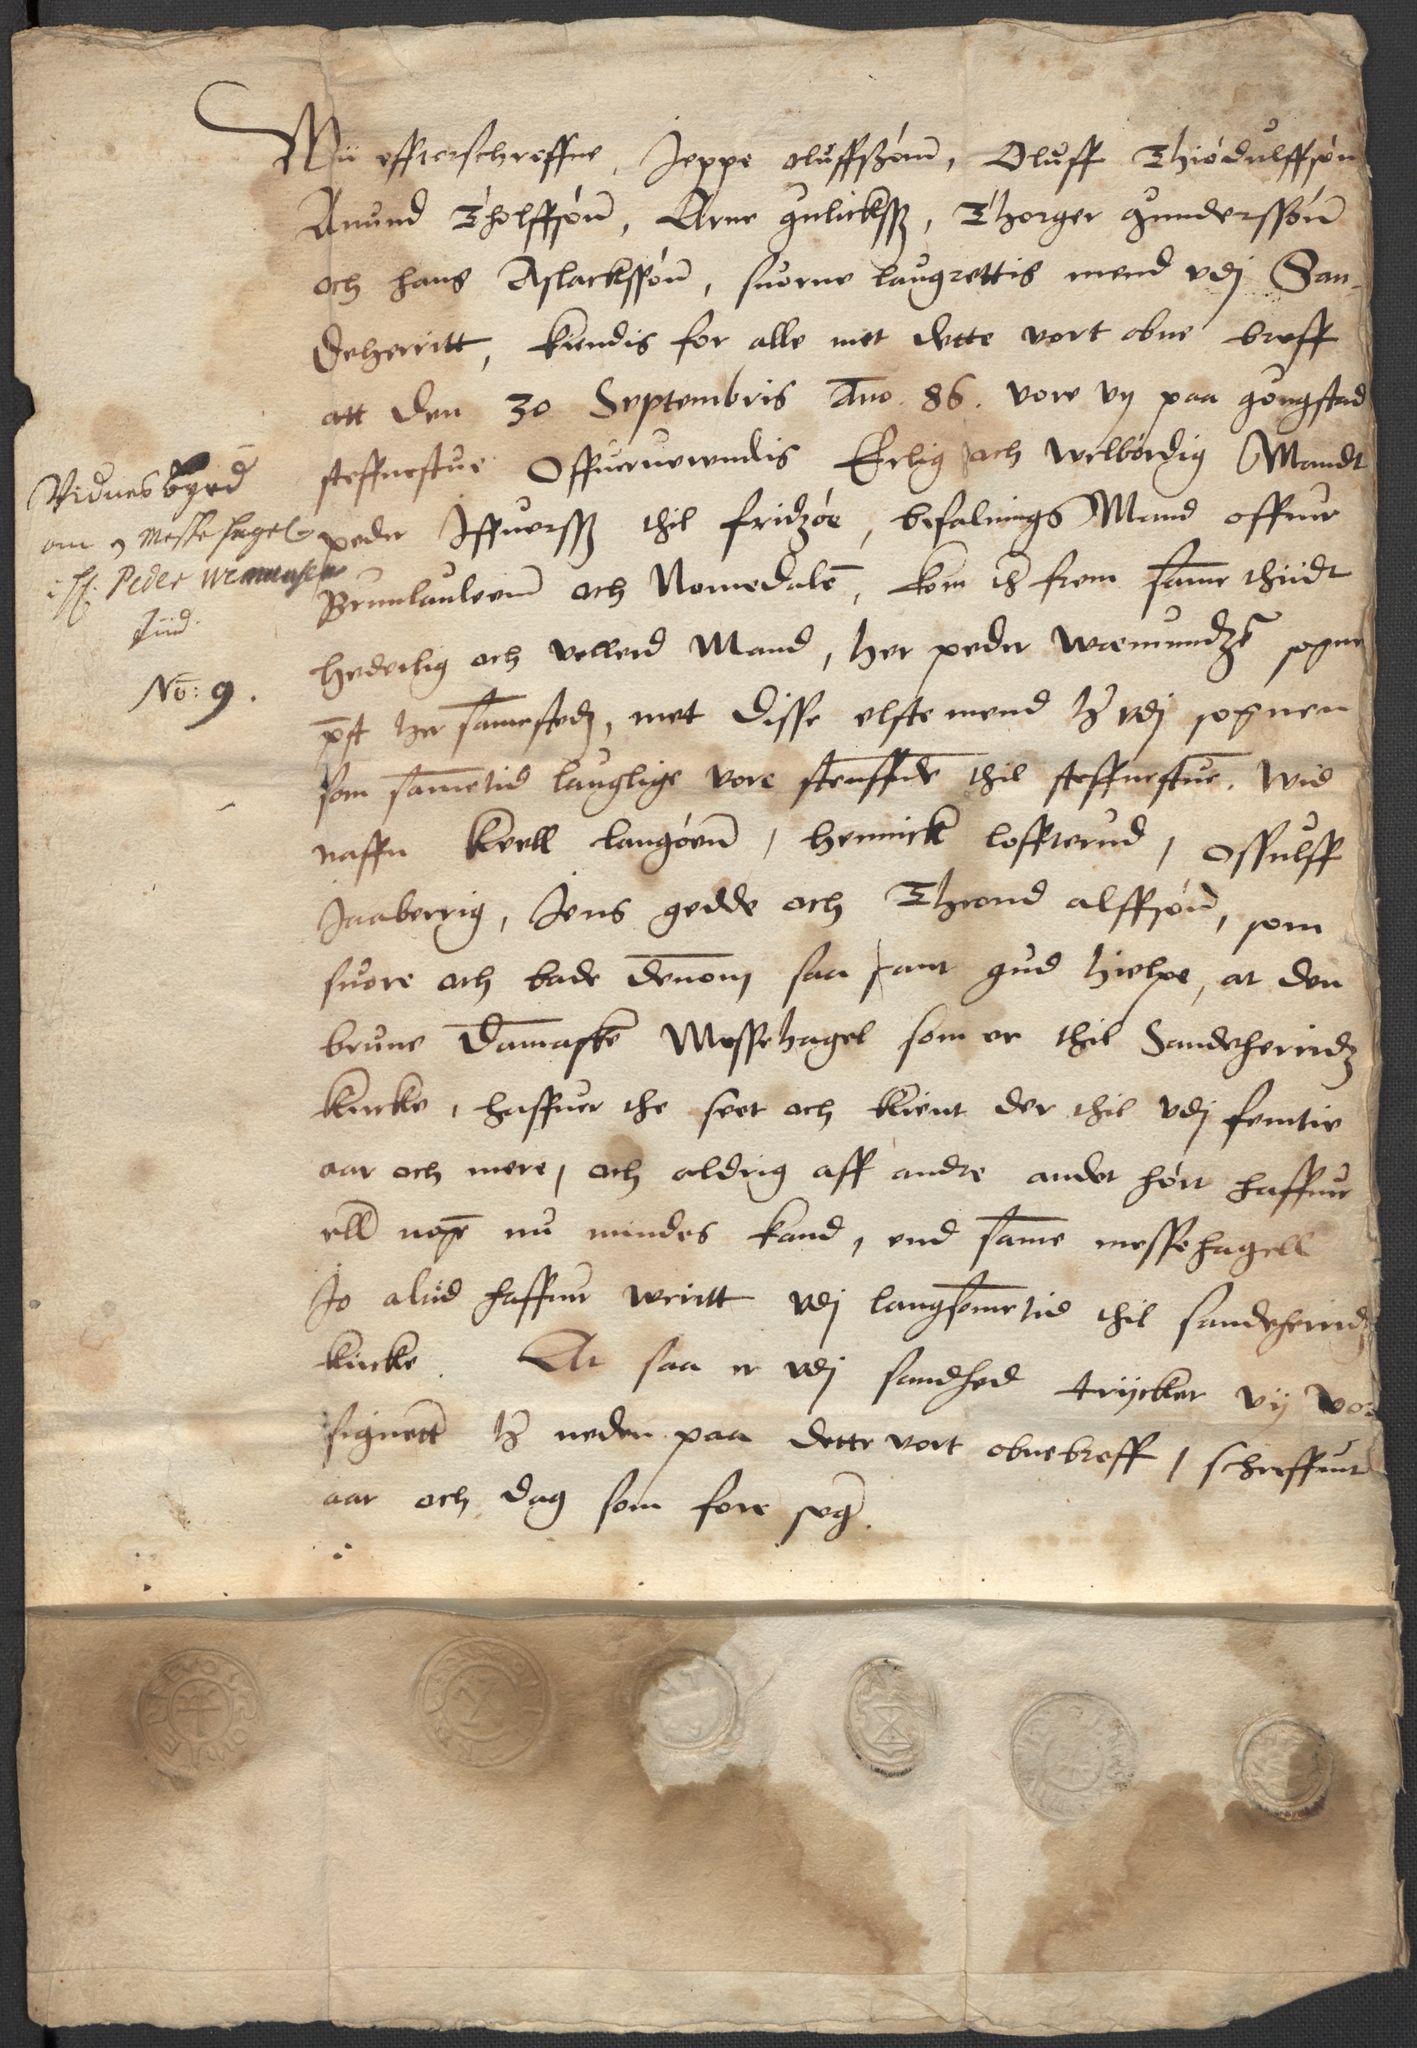 Wii effterschreffne, Jeppe oluffszøn, Oluff Thiodulffsøn
Anund Tholffsøn, Arne gulickss, Thorger gunderssøn
och hans Aslackssøn, suorne laugrettis mend vdj San-
deherritt, kiendis for alle met dette vort obne breff
att den 30 Septembris Ano. 86. vore vij paa gougstad
steffnestue Offueruerendis Erlig och welbördig Mandt
peder Iffuerss thil fridzöe, befalings Mand offuer
Brunlauleenn och Nomedalē, kom th frem same thiidt
hederlig och vellerd Mand, her peder Wemundzē sogne
pst her samestedz, met disse elste mend th vdj sognen
som sametid lauglige vore steuffnde thil steffnestue. Wid
naffn Keell langöenn, hennick lofftterud, Ossulff
Jaaberrig, Jens gedde och Thrond alffsøn, som
suore och bade dennom saa sant gud hielpe, at den
brune Damaske Messehagel som er thil Sandeherridz
kircke, haffuer the seet och kient der thil vdj femtie
aar och mere, och aldrig aff andre andet hört haffuer
ell nogē nu mindes kand, end same messehagell
Jo altid haffuer weritt vdj langsometid thil sandeherridz
kircke. At saa er vdj sandhed trycker vij vor
signett th neden paa dette vort obnebreff, schreffuit
aar och dag som fore sēg.
Vidnesbyrd
om 1 messehagel
i H. Peder Wemunsen
Tiid.
No: 9.